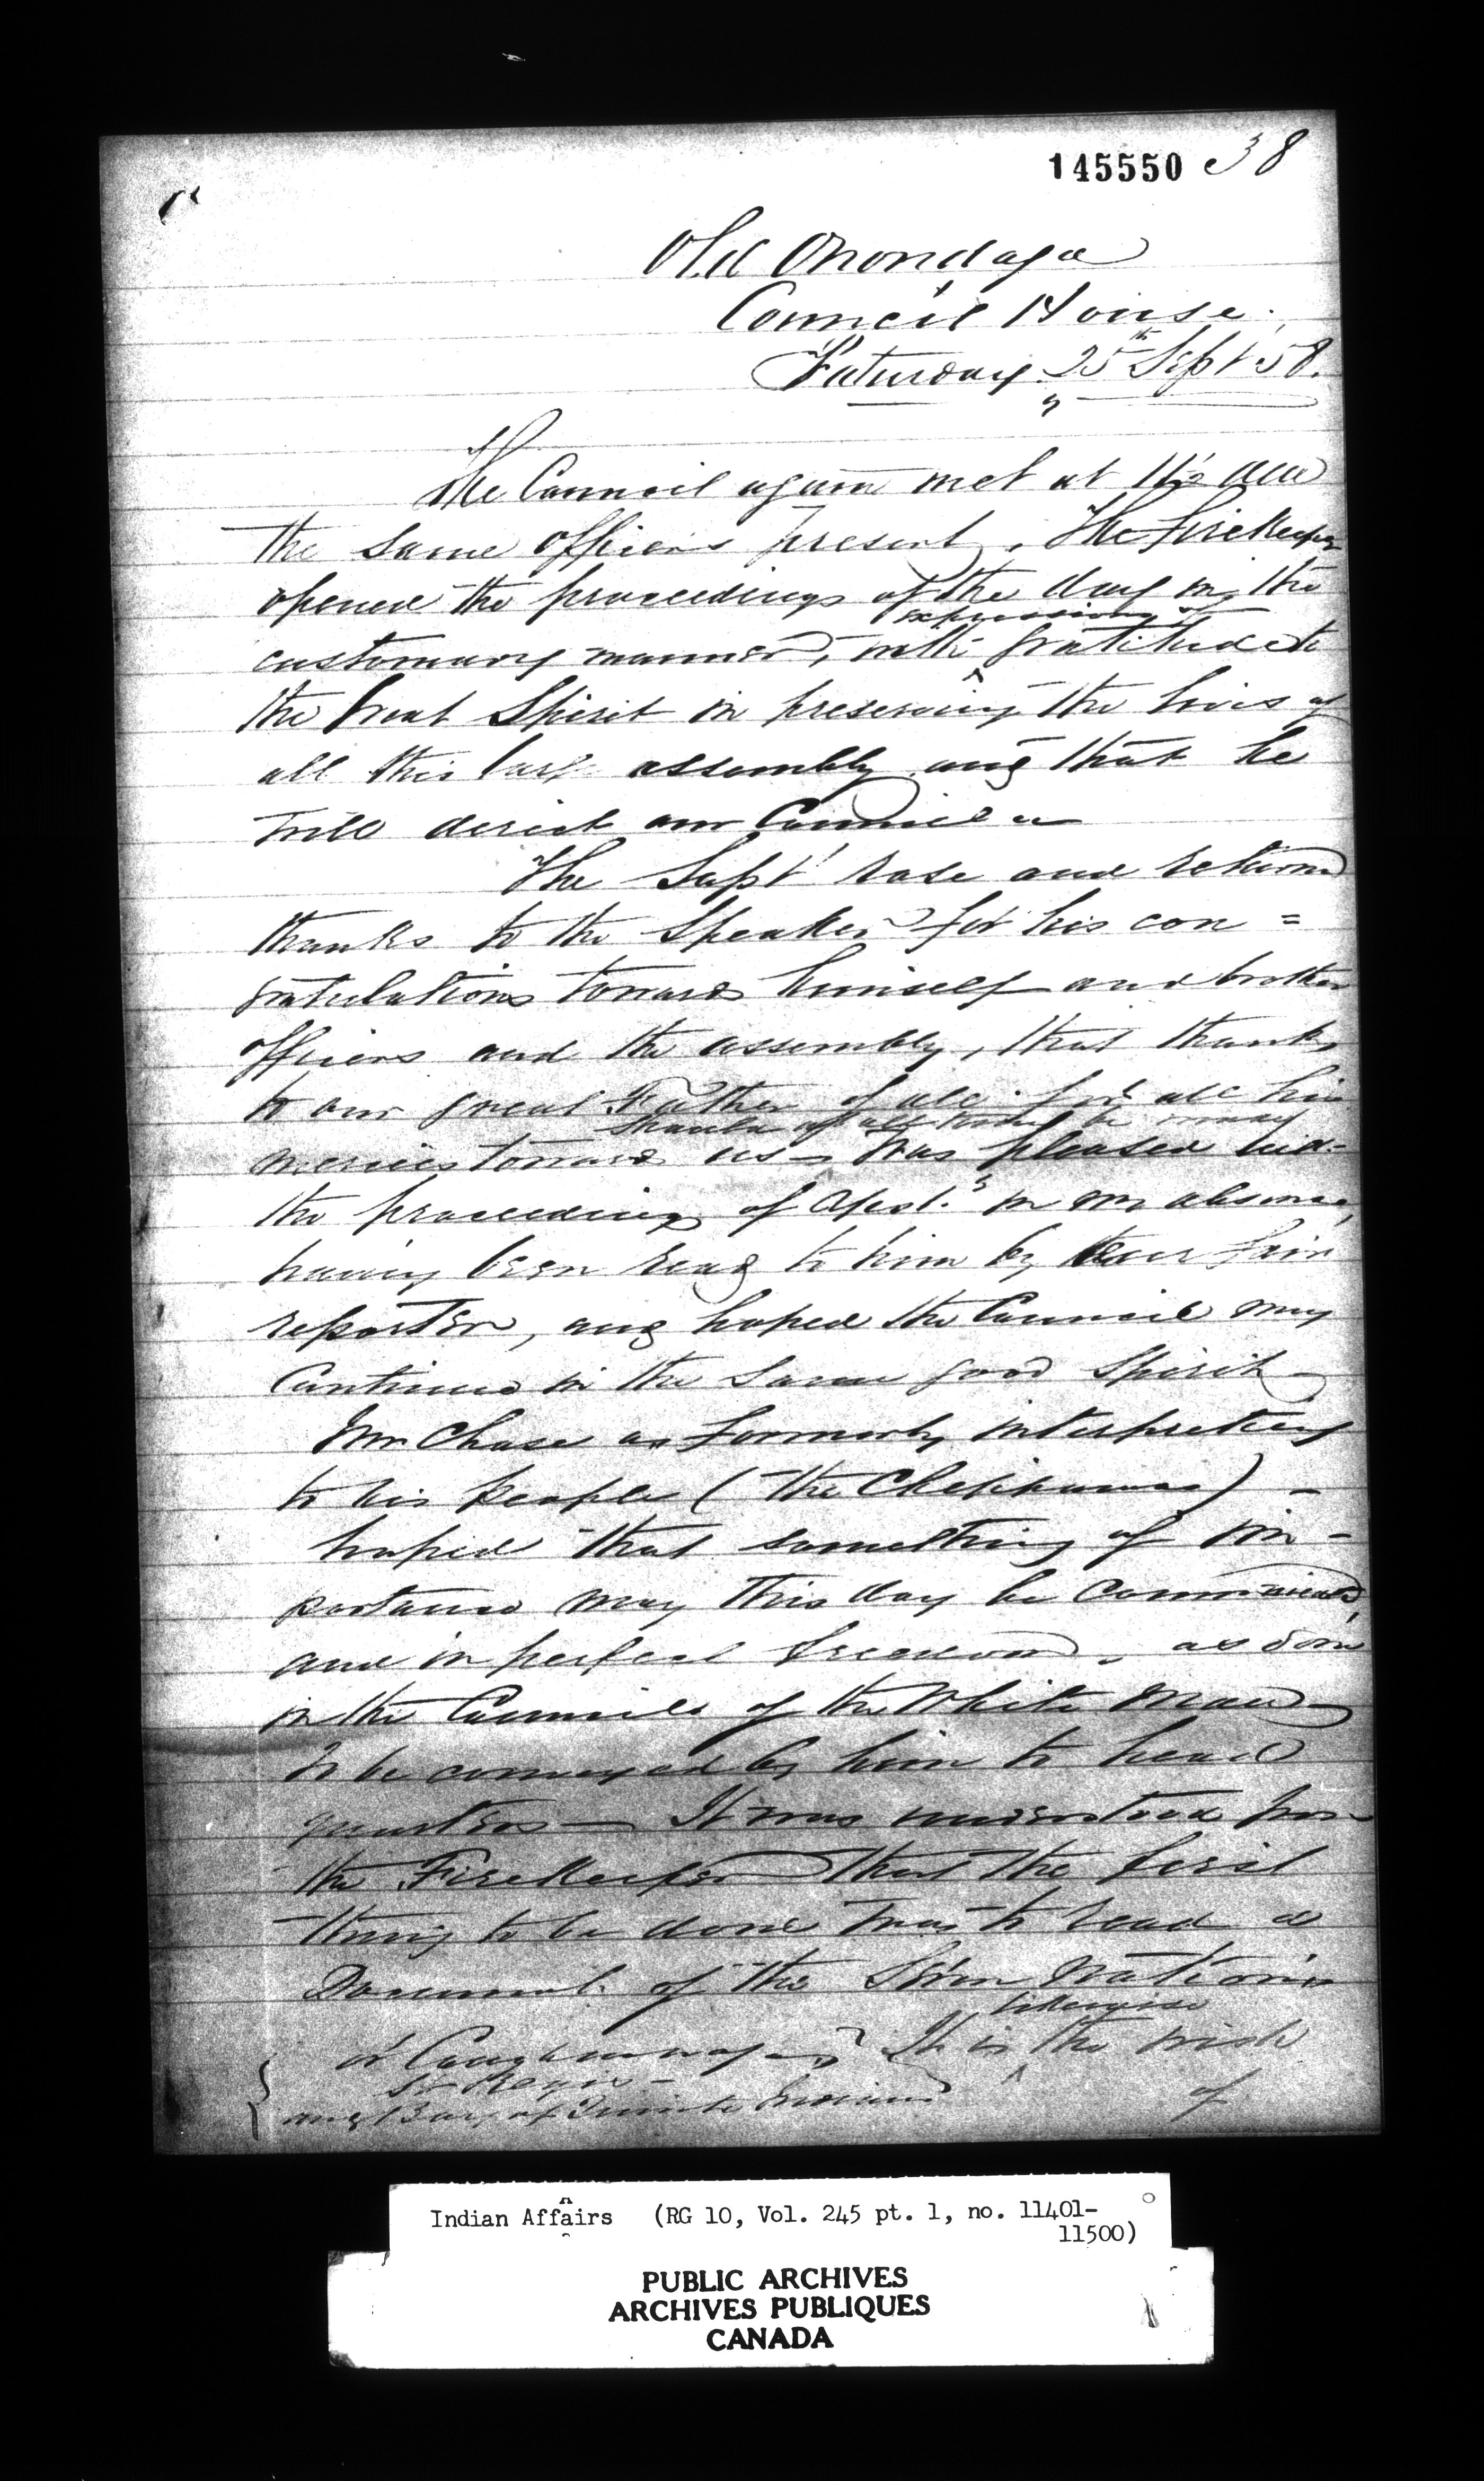 145550 38
Old Onondaga
Council House.
Saturday 25th Sept 58.
The Council again met at
the same officers present. The FireKeeper
opened the proceedings of the day in the
expressions of
customary manner, with gratitude to
the Great Spirit in preserving the lives of
all this large assembly and that he
will direct our Council
The Supt rose and returned
thanks to the Speaker for his con=
gratulations towards himself and brother
officers and the assembly, that thanks
to our great Father of all for all his
thanks of all be made
mercies towards us - was pleased with
the proceedings of in my absence,
having been read to him by our fair
reporter, and hoped the Council may
Continue in the same good Spirit
Mr Chase as formerly interpreting
to his people (the Chippawas) -
hoped that something of im-
portance may this day be communicated,
and in perfect freedom, as done
in the Councils of the White Man
to be conveyed by him to head
quarters - It was understood from
the FireKeeper that the first
thing to be done was to read a
Document of the Seven Nations
likewise
or Caughnawaga It is the wish
St Regis -
and Bay of Quinte Indians
of
Indian Affairs (RG 10, Vol. 245 pt. 1, no. 11401-
11500)
PUBLIC ARCHIVES
ARCHIVES PUBLIQUES
CANADA